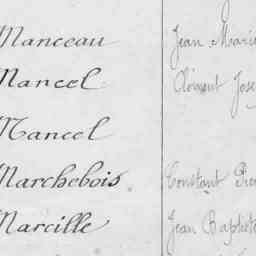 Manceau Jean Marie
Mancel Clément Jose
Mancel
Marchebois. Constant Pier
Marcille Jean Baptiste